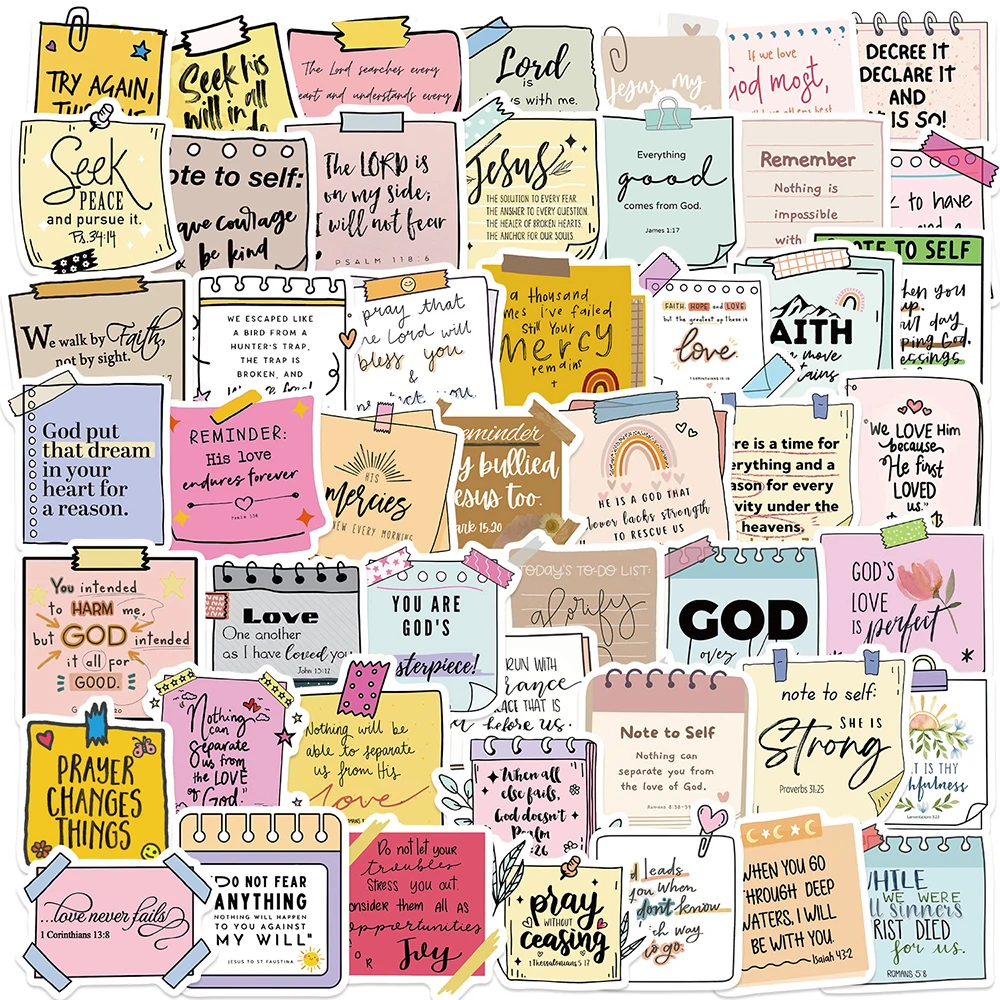 TRY AGAIN,
Seek his
will in all
The Lord searches every
heart and understands every
Lord
is
with me.
Jesus my
If we love
God most,
DECREE IT
DECLARE IT
AND
IS SO!
Seek
PEACE
and pursue it.
Ps. 34:14
ote to self:
ave courage
& be kind
The LORD is
on my side;
I will not fear
PSALM 118:6
Jesus
THE SOLUTION TO EVERY FEAR.
THE ANSWER TO EVERY QUESTION.
THE HEALER OF BROKEN HEARTS.
THE ANCHOR FOR OUR SOULS.
Everything
good
comes from God.
James 1:17
Remember
Nothing is
impossible
with
to have
and
OTE TO SELF
hen you
up.
day
ping God.
essings
We walk by Faith,
not by sight.
WE ESCAPED LIKE
A BIRD FROM A
HUNTER'S TRAP.
THE TRAP IS
BROKEN, AND
pray that
he Lord will
bless you
&
you
a thousand
mes I've failed
Still Your
Mercy
remains
FAITH, HOPE and LOVE
but the greatest of these is
love.
AITH
move
tains
God put
that dream
in your
heart for
a reason.
REMINDER:
His love
endures forever
Psalm 136
HIS
Mercies
NEW EVERY MORNING
eminder
y bullied
esus too.
ark 15.20
HE IS A GOD THAT
never lacks strength
TO RESCUE US
re is a time for
erything and a
ason for every
vity under the
heavens.
"We LOVE Him
because
He first
LOVED
us."
You intended
to HARM me,
but GOD intended
it all for
GOOD.
Love
One another
as I have loved you
John 15:12
YOU ARE
GOD'S
sterpiece!
TODAY'S TO-DO LIST:
glorify
GOD
loves
GOD'S
LOVE
IS perfect
RUN WITH
rance
ACE THAT IS
before us.
PRAYER
CHANGES
THINGS
Nothing
can
Separate
us from
the LOVE
of God.
Nothing will be
able to separate
us from His
love
"When all
else fails,
God doesn't"
Psalm
:26
Note to Self
Nothing can
separate you from
the love of God.
Romans 8:38-39
note to self:
SHE IS
Strong
Proverbs 31:25
T IS THY
hfulness
Lamentations 3:23
...love never fails
1 Corinthians 13:8
"DO NOT FEAR
ANYTHING
NOTHING WILL HAPPEN
TO YOU AGAINST
MY WILL"
JESUS TO ST FAUSTINA
Do not let your
troubles
Stress you out.
onsider them All as
opportunities
OR
Joy
pray
WITHOUT
ceasing
1 Thessalonians 5:17
leads
you When
don't know
ich way
to go.
WHEN YOU GO
THROUGH DEEP
WATERS, I WILL
BE WITH YOU.
Isaiah 43:2
WHILE
WE WERE
ll sinners
RIST DIED
for us.
ROMANS 5:8